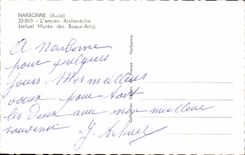 NARBONNE (Aude)
25-010 - L'ancien Archevêché
(actuel Musée des Beaux-Arts).
A Narbonne
pour quelques
jours. Mes meilleurs
voeux pour tous
les deux avec mon meilleur
souvenir
Narbonne